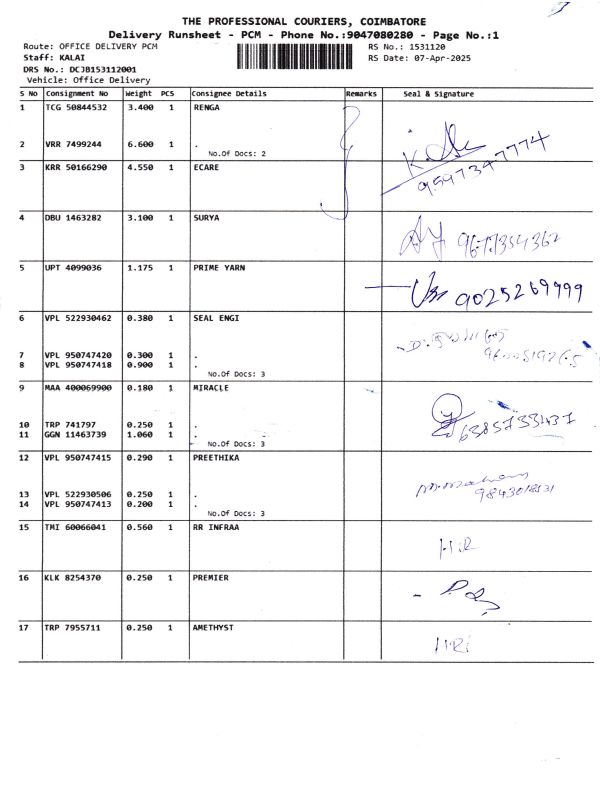 THE PROFESSIONAL COURIERS, COIMBATORE
Delivery Runsheet - PCM - Phone No.:9047080280 - Page No.:1
Route: OFFICE DELIVERY PCM RS No.: 1531120
Staff: KALAI RS Date: 07-Apr-2025
DRS No.: DCJB153112001
Vehicle: Office Delivery
S No Consignment No Weight PCS Consignee Details Remarks Seal & Signature
1 TCG 50844532 3.400 1 RENGA
2 VRR 7499244 6.600 1 .
No.Of Docs: 2
9597397774
3 KRR 50166290 4.550 1 ECARE
4 DBU 1463282 3.100 1 SURYA
9677354362
5 UPT 4099036 1.175 1 PRIME YARN
9025269999
6 VPL 522930462 0.380 1 SEAL ENGI
7 VPL 950747420 0.300 1 .
8 VPL 950747418 0.900 1 .
No.Of Docs: 3
9 MAA 400069900 0.180 1 MIRACLE
10 TRP 741797 0.250 1 .
11 GGN 11463739 1.060 1 .
No.Of Docs: 3
12 VPL 950747415 0.290 1 PREETHIKA
13 VPL 522930506 0.250 1 .
14 VPL 950747413 0.200 1 .
No.Of Docs: 3
15 TMI 60066041 0.560 1 RR INFRAA
16 KLK 8254370 0.250 1 PREMIER
17 TRP 7955711 0.250 1 AMETHYST